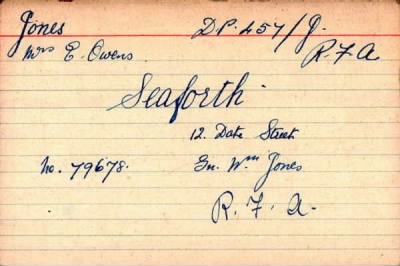 Jones DP. 457/J.
Mrs E. Owens. R.F.A
Seaforth.
12. Date Street
No. 79678. Gn. Wm Jones
R.F.A.